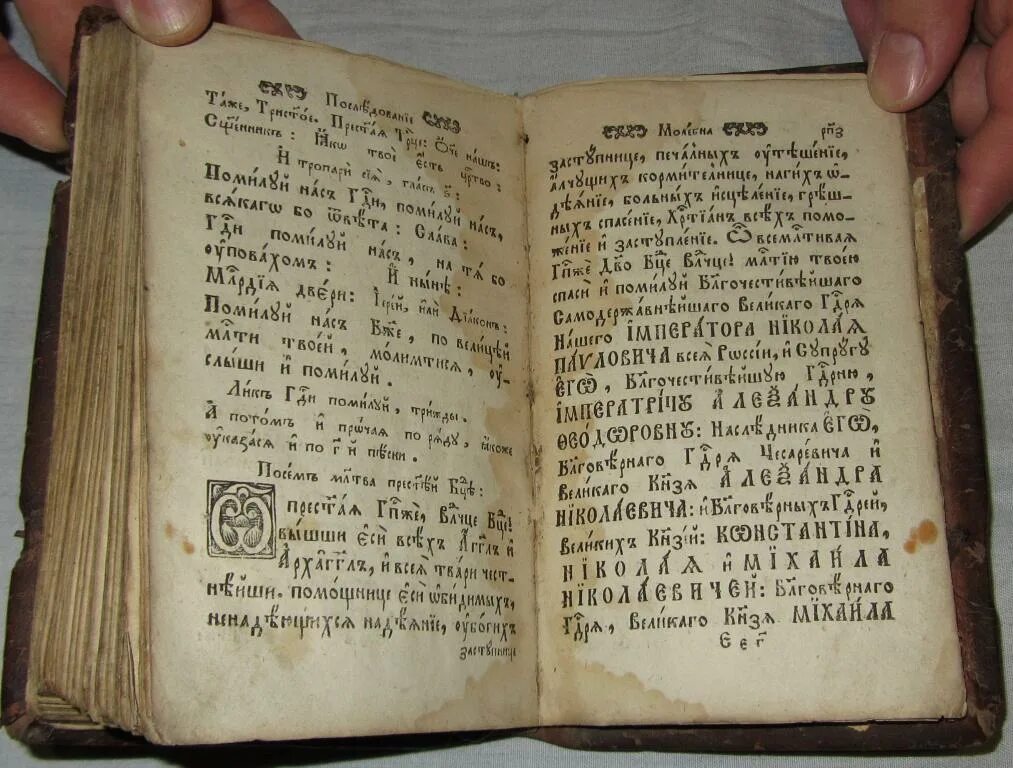 Послѣ́дованїе
Та́же, Трист҃о́е. Прест҃а́ѧ Трⷪ҇це: Ѻ҆́ч҃е на́шъ:
Сщ҃е́нникъ: Ꙗ҆́кѡ твоѐ є҆́сть црⷭ҇тво:
И҆ тропарѝ сїѧ̀, гла́съ ѕ҃:
Поми́лꙋй на́съ гдⷭ҇и, поми́лꙋй на́съ,
всѧ́кагѡ бо ѿвѣ́та: Сла́ва:
Гдⷭ҇и поми́лꙋй на́съ, на тѧ̀ бо
ᲂу҆пова́хомъ: И҆ ны́нѣ:
Млⷭ҇рдїѧ две́ри: І҆ере́й, и҆лѝ Дїа́конъ:
Поми́лꙋй на́съ Бж҃е, по вели́цѣй
млⷭ҇ти твое́й, мо́лимтисѧ, ᲂу҆-
слы́ши и҆ поми́лꙋй.
Ли́къ Гдⷭ҇и поми́лꙋй, три́жды.
А҆ пото́мъ и҆ прѡ́чаѧ по рѧ́дꙋ, ꙗ҆́коже
ᲂу҆каза́сѧ и҆ по г҃ й пѣ́сни.
Посе́мъ мл҃тва прест҃ѣ́й Бцⷣѣ:
Ѽ прест҃а́ѧ Гпⷭ҇же, Влⷣчце Бцⷣе!
вы́шши є҆сѝ всѣ́хъ А҆́гг҃лъ и҆
А҆рха́гг҃лъ, и҆ всеѧ̀ тва́ри чест-
нѣ́йши. помо́щнице є҆сѝ ѡ҆би́димыхъ,
ненадѣ́ющихсѧ надѣ́ѧнїе, ᲂу҆бо́гихъ
застꙋ́пнице
Моле́бна рп҃з
застꙋ́пнице, печа́лныхъ ᲂу҆тѣше́нїе,
а҆́лчꙋщихъ корми́телнице, наги́хъ ѡ҆-
дѣѧ́нїе, больны́хъ и҆сцѣле́нїе, грѣ́ш-
ныхъ спасе́нїе, Хрⷭ҇тїа́нъ всѣ́хъ помо-
же́нїе и҆ застꙋпле́нїе. Ѽ всемлⷭ҇тиваѧ
Гпⷭ҇жѐ Дв҃о Бцⷣе Влⷣчце! млⷭ҇тїю твое́ю
спасѝ и҆ поми́лꙋй Бл҃гочести́вѣйшаго
Самодержа́внѣйшаго Вели́каго Гдⷭ҇рѧ
На́шего І҆МПЕРА́ТОРА НЇКОЛА́Ѧ
ПА́ѴЛОВИЧА всеѧ̀ Рѡссі́и, и҆ Сꙋпрꙋ́гꙋ
Є҆ГѠ̀, Бл҃гочести́вѣйшꙋю Гдⷭ҇рню,
І҆МПЕРАТРІ́ЦꙊ А҆ЛЕѮА́НДРꙊ
ѲЕО́ДѠРОВНꙊ: Наслѣ́дника Є҆ГѠ̀,
Бл҃говѣ́рнаго Гдⷭ҇рѧ Чесаре́вича и҆
Вели́каго Кнѧ́зѧ А҆ЛЕѮА́НДРА
НЇКОЛА́ЕВИЧА: и҆ Бл҃говѣ́рныхъ Гдⷭ҇рей,
Вели́кихъ Кнѧзе́й: КѠНСТАНТІ́НА,
НЇКОЛА́Ѧ и҆ МЇХАИ́ЛА
НЇКОЛА́ЕВИЧЕЙ: Бл҃говѣ́рнаго
Гдⷭ҇рѧ, Вели́каго Кнѧ́зѧ МЇХАИ́ЛА
Е е г҃